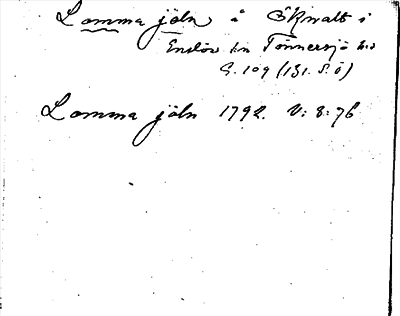 Lomma jöln å Öknalt i
Enslöv sn Tönnersjö hd
G. 109 (131. S. Ö)
Lomma jöln 1792. V: 8: 76